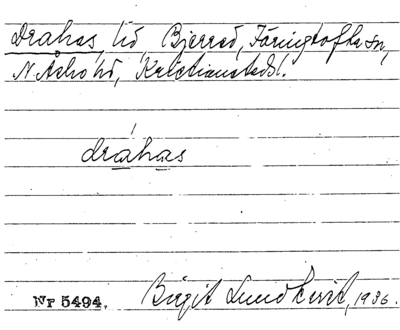 Drahas, lid, Bjerred, Färingtofta sn,
N. Åsbo hd, Kristianstads l.
dráhas
Nr 5494. Birgit Lundkvist, 1936.